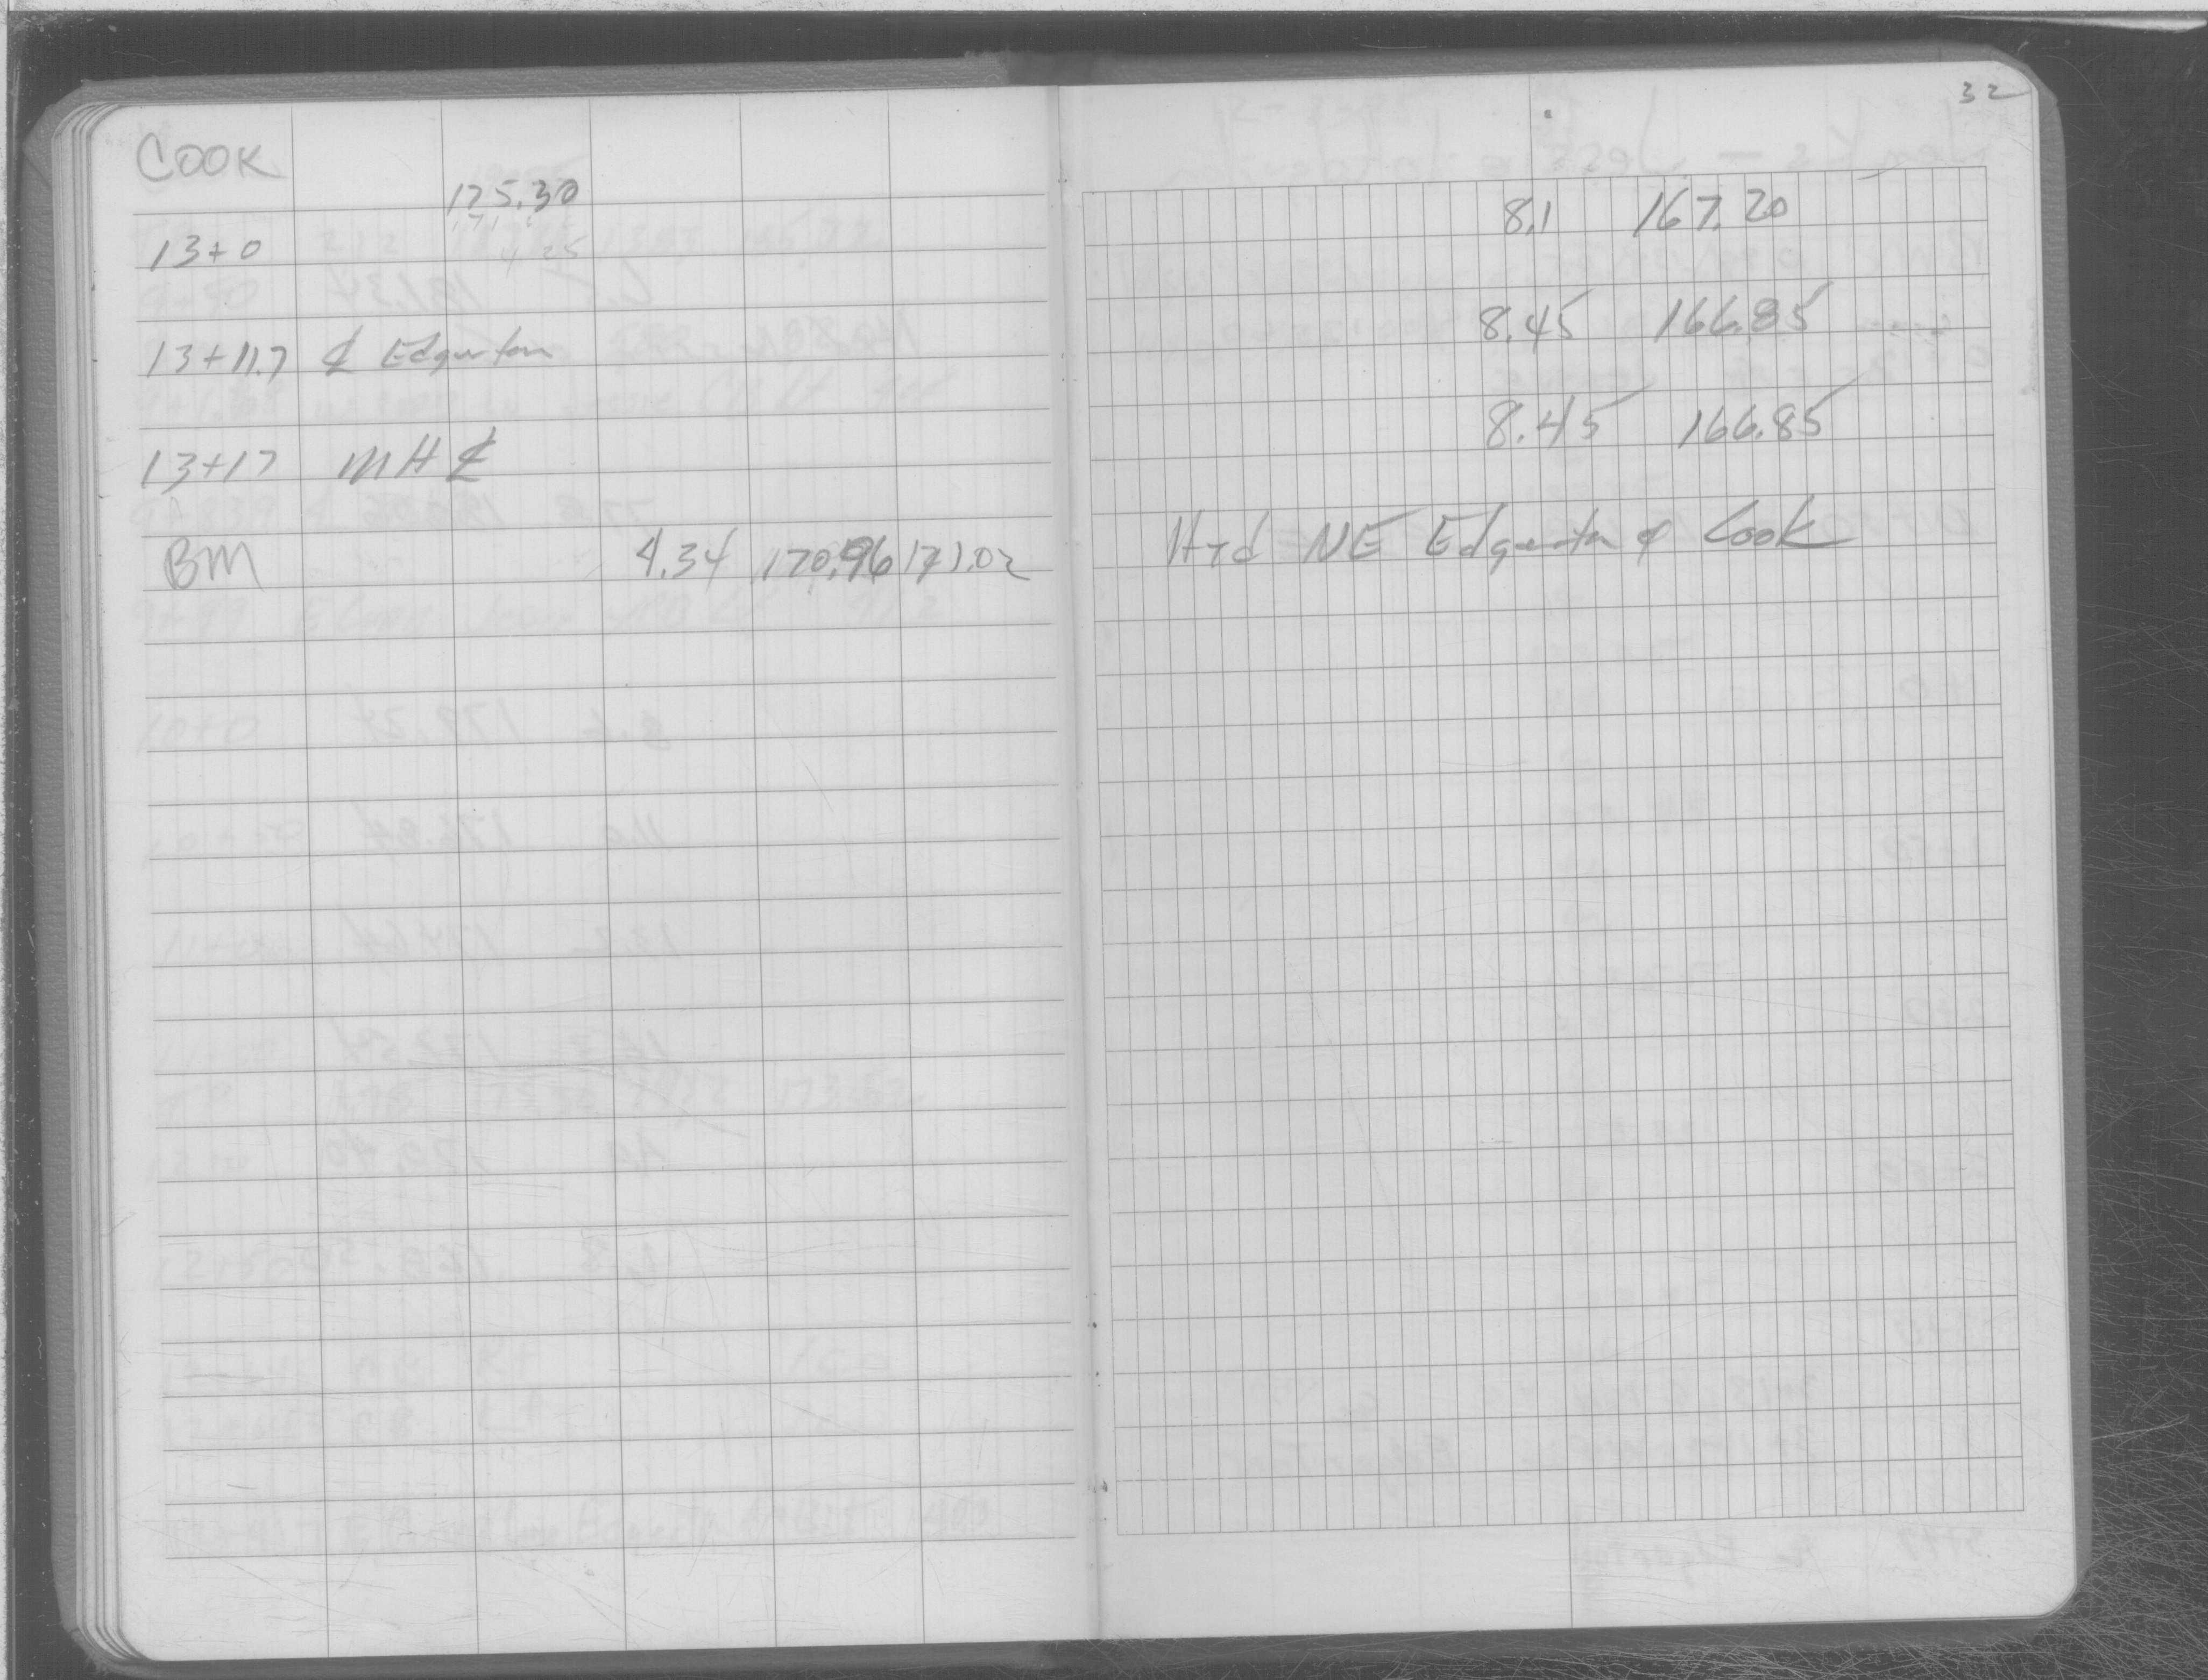 32
COOK
175.30
13+0 8.1 167.20
13+11.7 ₵ Edgerton 8.45 166.85
13+17 MH ₵ 8.45 166.85
BM 4.34 170.96 171.02 Hyd NE Edgerton & Cook